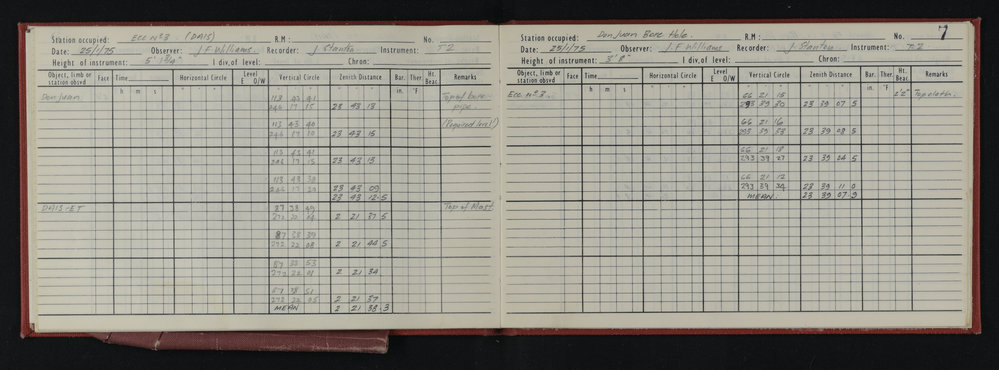 Station occupied: ECC Nº3 (DAIS) R.M: No.
Date: 25/1/75 Observer: J F Williams Recorder: J Stanton Instrument: T2
Height of instrument: 5' 1¾" I div, of level: Chron:
Object, limb or station obsvd Face Time Horizontal Circle Level E O/W Vertical Circle Zenith Distance Bar. Ther. Ht. Beac. Remarks
h m s ° ' " ° ' " ° ' " in. °F
Don Juan 113 43 41 Top of bore
246 17 15 23 43 13 pipe.
113 43 40 (Required level!)
246 17 10 23 43 15
113 43 41
246 17 15 23 43 13
113 43 38
246 17 20 23 43 09
23 43 12·5
DAIS-ET 87 38 49 Top of Mast.
272 22 04 2 21 37 5
87 38 39
272 22 08 2 21 44 5
87 38 53
272 22 01 2 21 34
87 38 51
272 22 05 2 21 37
MEAN 2 21 38·3
7
Station occupied: Don Juan Bore Hole. R.M: No.
Date: 25/1/75 Observer: J F Williams Recorder: J. Stanton Instrument: T2
Height of instrument: 3' 8" I div, of level: Chron:
Object, limb or station obsvd Face Time Horizontal Circle Level E O/W Vertical Circle Zenith Distance Bar. Ther. Ht. Beac. Remarks
h m s ° ' " ° ' " ° ' " in. °F
Ecc Nº3. 66 21 15 Top cloth.
293 39 30 23 39 07 5
66 21 16
293 39 33 23 39 08 5
66 21 18
293 39 27 23 39 04 5
66 21 12
293 39 34 23 39 11 0
MEAN. 23 39 07·9